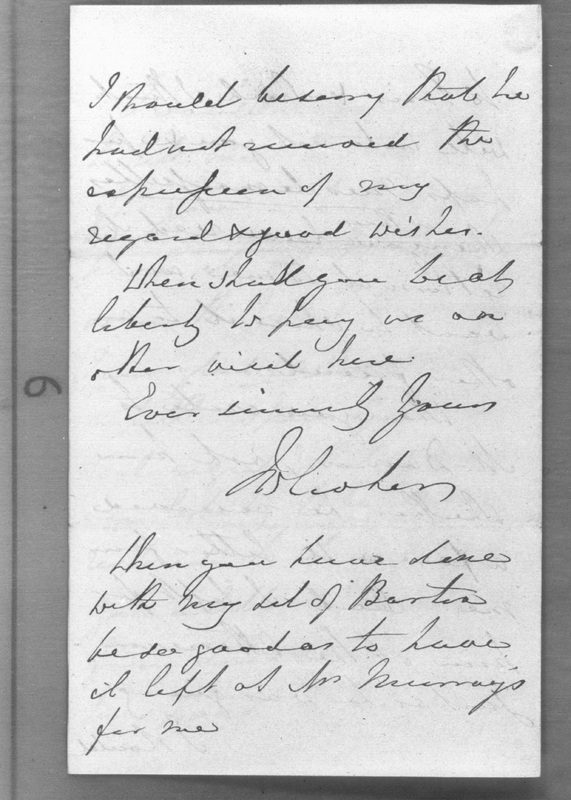 I should be sorry that he
had not received the
expression of my
regard & good wishes.
When shall you be at
liberty to pay us an
other visit here
Ever sincerely Yours
When you have done
with my set of Barton
be so good as to have
it left at Mr Murray's
for me
6